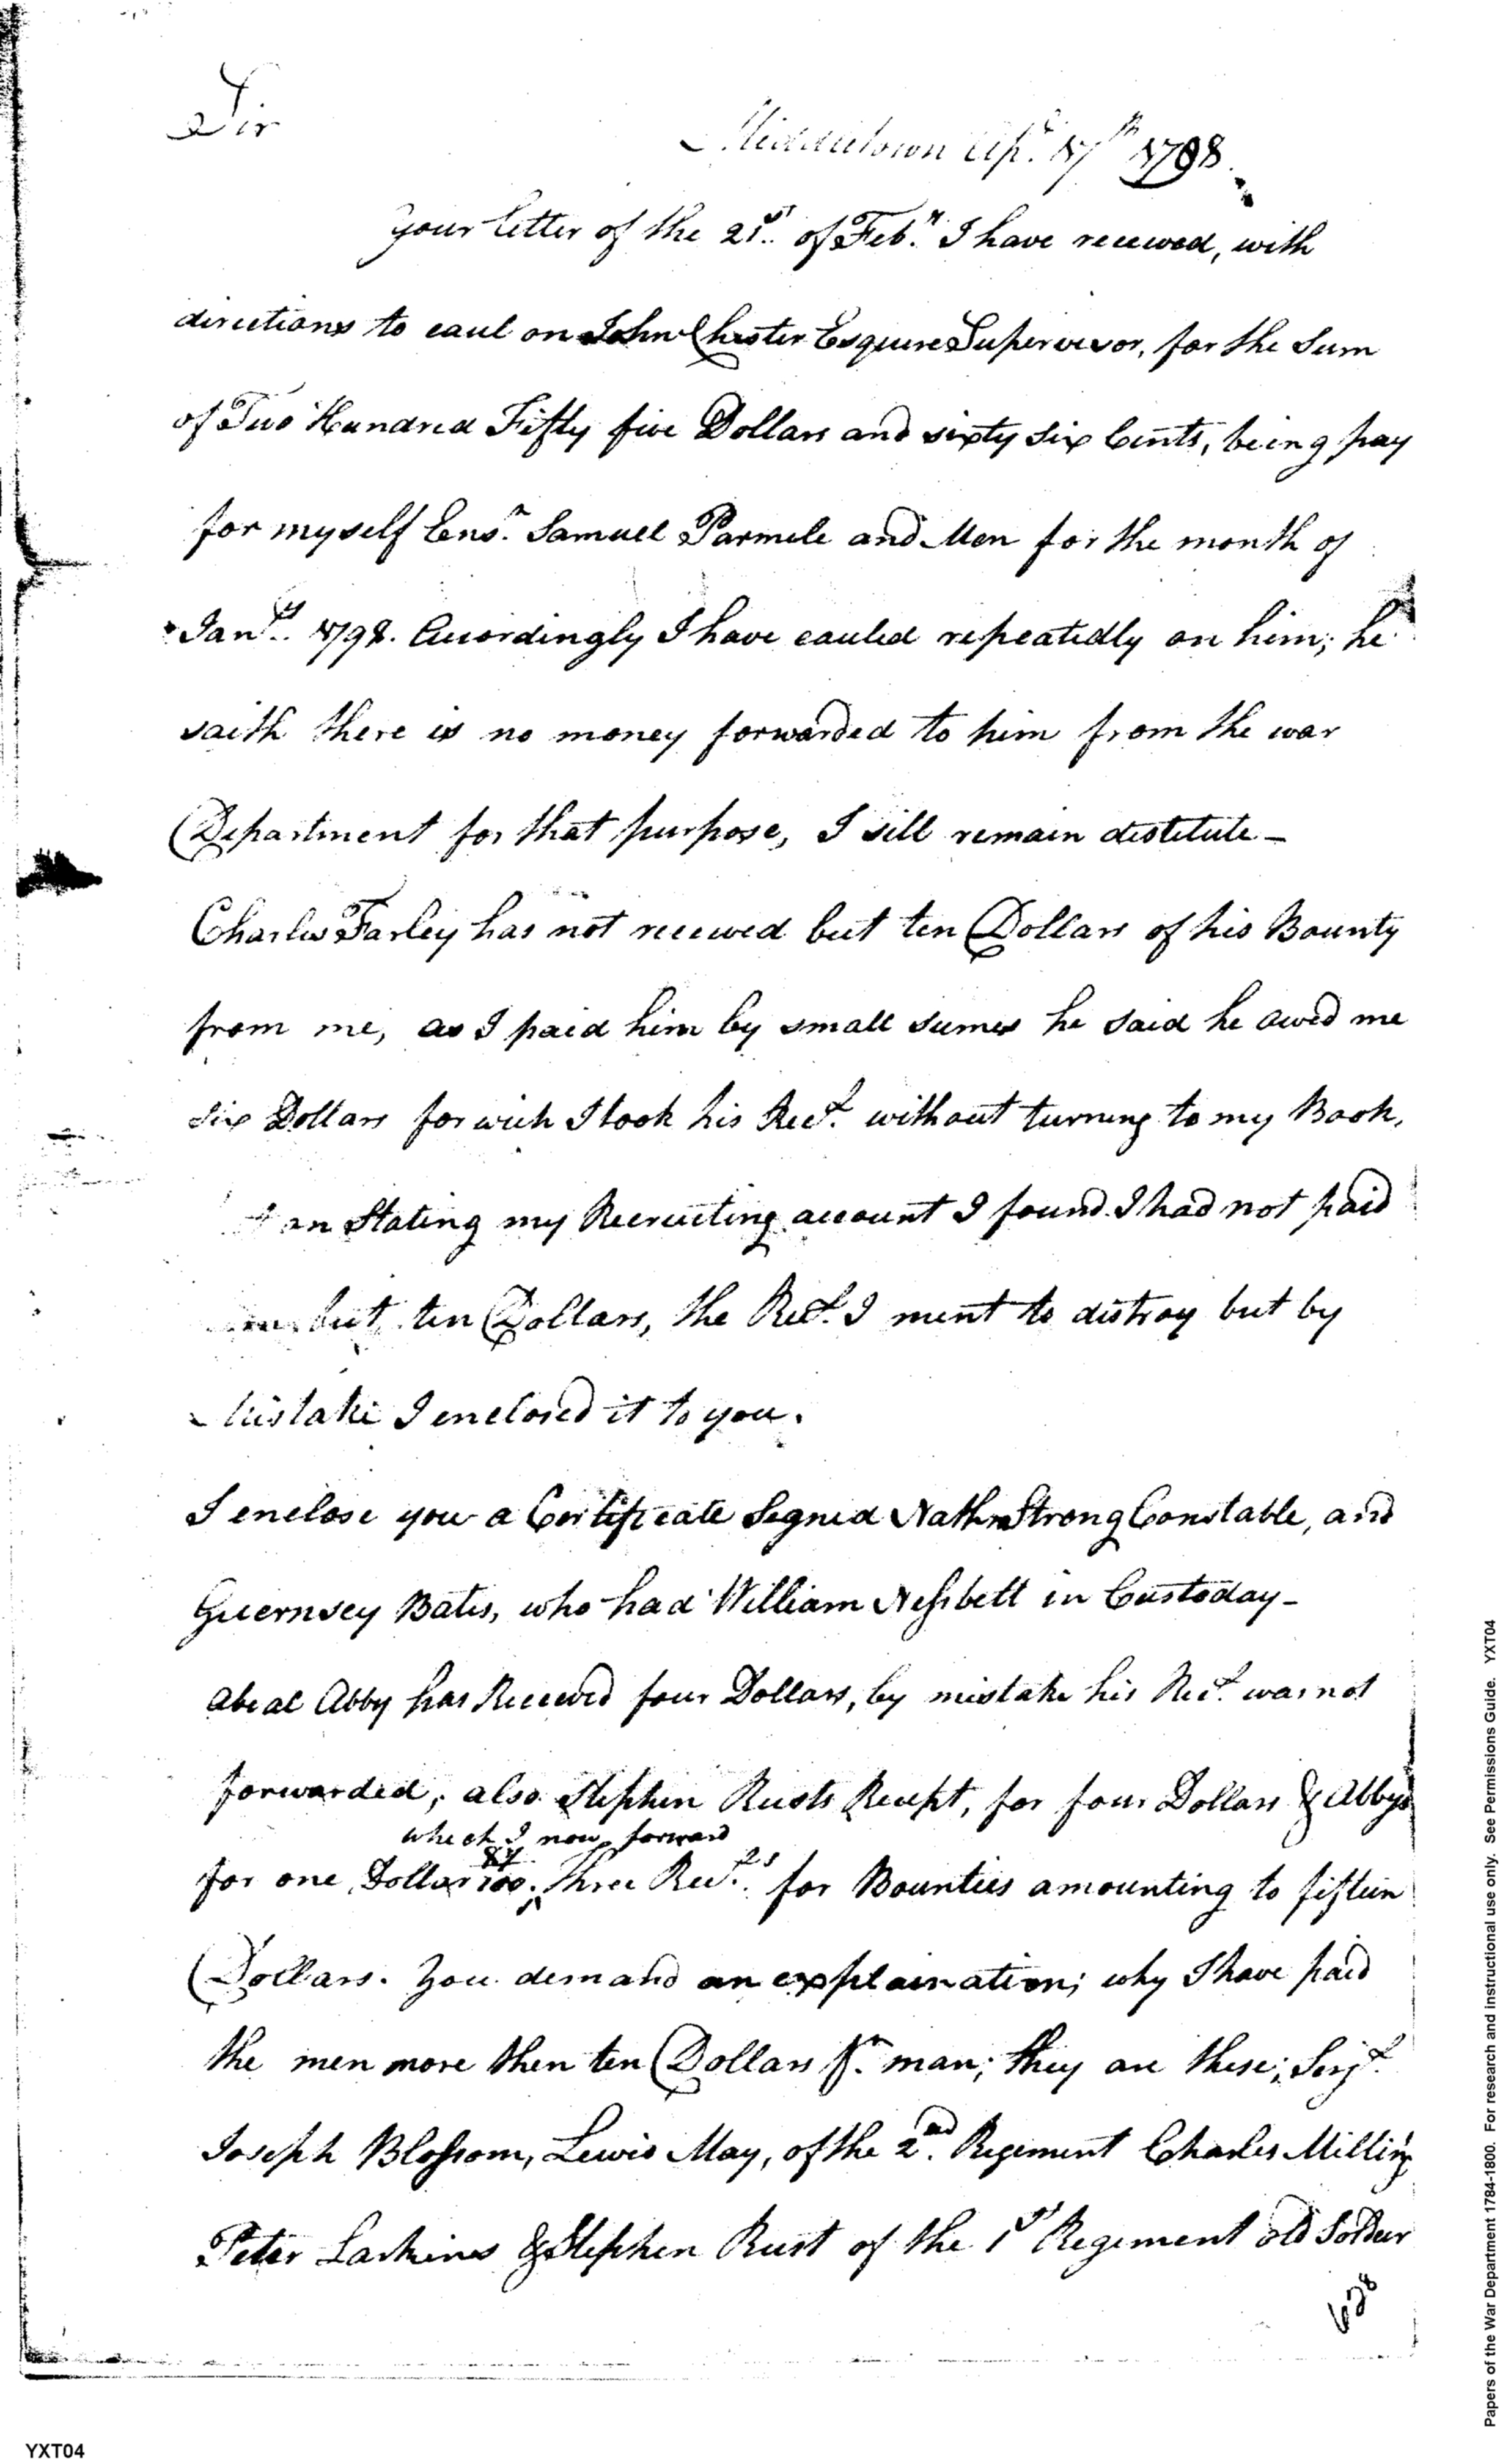 Sir
Middletown Apl. 17th 1798.
Your letter of the 21st. of Feby. I have received, with
directions to caul on John Chester Esquire Supervisor, for the Sum
of Two Hundred Fifty five Dollars and sixty six Cents, being pay
for myself Ensn. Samuel Parmele and Men for the month of
Jany. 1798. Accordingly I have cauled repeatedly on him; he
saith there is no money forwarded to him from the war
Department for that purpose, I sill remain destitute –
Charles Farley has not received but ten Dollars of his Bounty
from me, as I paid him by small sumes he said he owed me
six Dollars for wich I took his Rect. without turning to my Book,
on Stating my Recruiting account I found I had not paid
but ten Dollars, the Rect. I ment to distroy but by
Mistake I enclosed it to you.
I enclose you a Certificate Signed Nathn Strong Constable, and
Guernsey Bates, who had William Nessbett in Custoday –
Abeal Abby has Received four Dollars, by mistake his Rect. was not
forwarded, also Stephen Rusts Receipt, for four Dollars & Abbys
which I now forward
for one Dollar 87/100. three Rects. for Bounties amounting to fifteen
Dollars. You demand an explaination; why I have paid
the men more then ten Dollars pr. man; they are these; Serjt.
Joseph Blossom, Lewis May, of the 2nd. Regiment Charles Milling
Peter Larkins & Stephen Rust of the 1st Regement old Soldier
638
YXT04
Papers of the War Department 1784-1800. For research and instructional use only. See Permissions Guide. YXT04